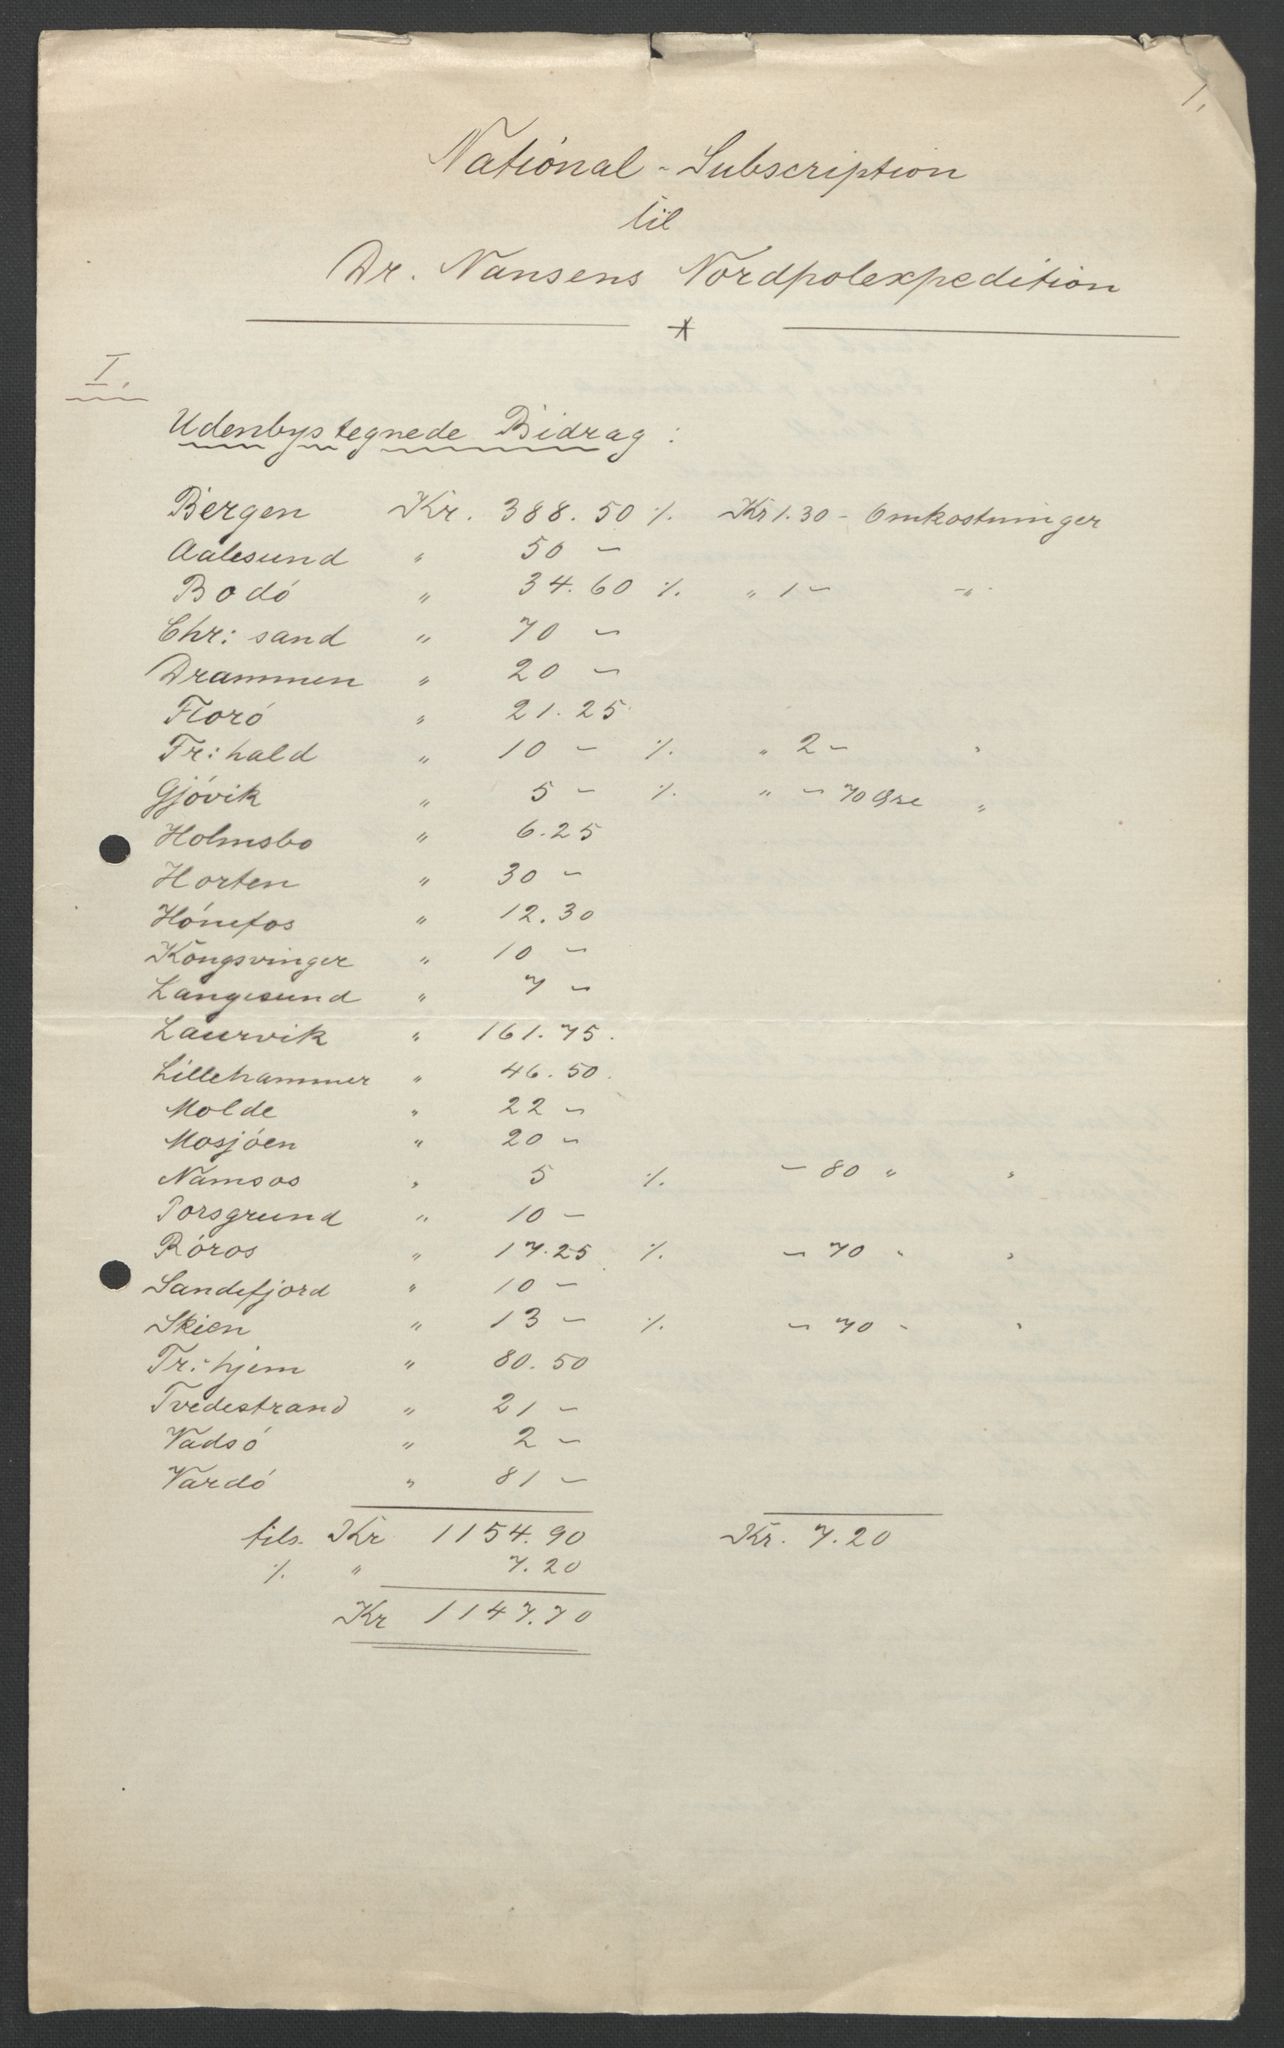 1.
National-Subscription
til
Dr. Nansens Nordpolexpedition
I.
Udenbys tegnede Bidrag:
Bergen Kr. 388.50 ./. Kr 1.30 - Omkostninger
Aalesund " 50 -
Bodó " 34.60 ./. " 1 - - " -
Chr: sand " 70 -
Drammen " 20 -
Floró " 21.25
Fr: hald " 10 - ./. " 2 - "
Gjóvik " 5 - ./. " - 70 Øre "
Holmsbo " 6.25
Horten " 30 -
Hónefos " 12.30
Kongsvinger " 10 -
Langesund " 7 -
Laurvik " 161.75.
Lillehammer " 46.50.
Molde " 22 -
Mosjóen " 20 -
Namsos " 5 ./. - 80 " "
Porsgrund " 10 -
Róros " 17.25 ./. - 70 " "
Sandefjord " 10 -
Skien " 13 - ./. - 70 - "
Tr: hjem " 80.50
Tvedestrand " 21 -
Vadsó " 2 -
Vardó " 81 -
tils. Kr 1154.90 Kr. 7.20
./. " 7.20
Kr 1147.70